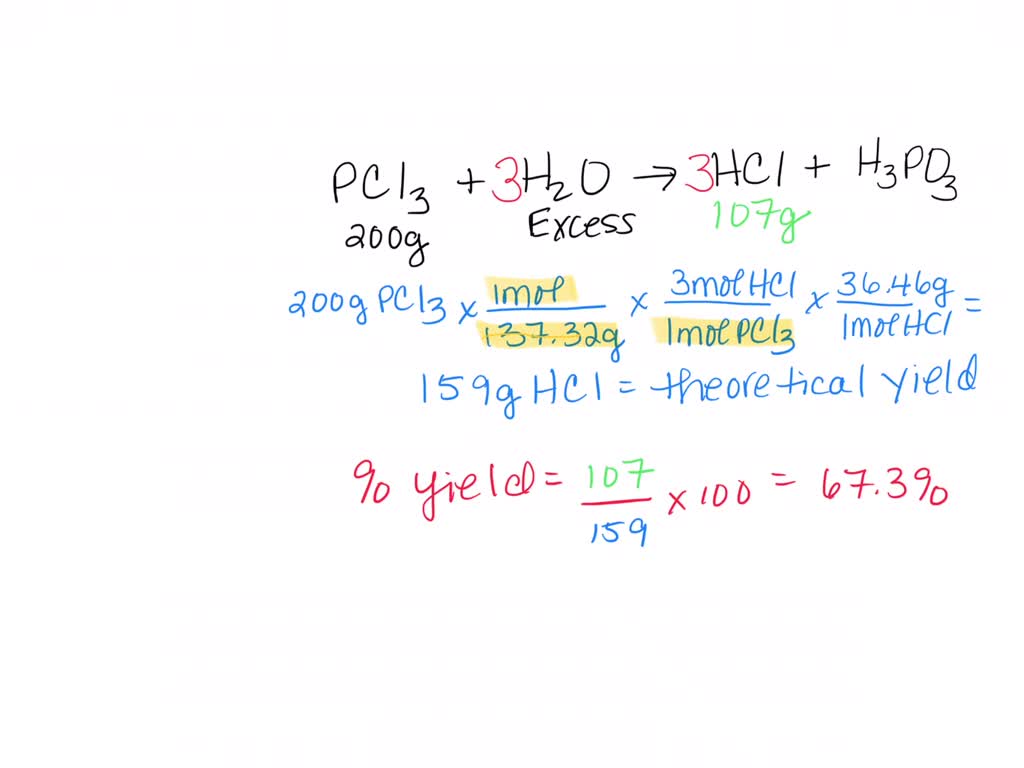 PCl₃ + 3H₂O → 3HCl + H₃PO₃
200g Excess 107g
200g PCl₃ x 1mol/137.32g x 3molHCl/1molPCl₃ x 36.46g/1molHCl =
159g HCl = theoretical yield
% yield = 107/159 x 100 = 67.3%